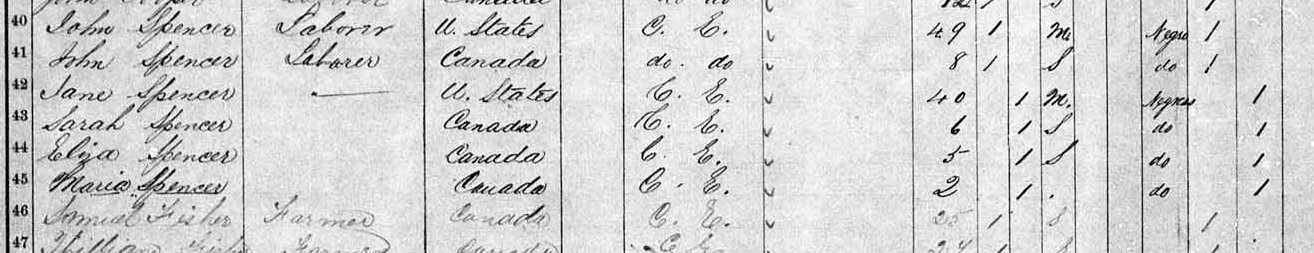 40 John Spencer Laborer U. States C. E. 49 1 M. Negro 1
41 John Spencer Laborer Canada do. do 8 1 S do 1
42 Jane Spencer — U. States C. E. 40 1 M. Negress 1
43 Sarah Spencer Canada C. E. 6 1 S do 1
44 Eliza Spencer Canada C. E. 5 1 S do 1
45 Maria Spencer Canada C. E. 2 1 . do 1
46 Samuel Fisher Farmer Canada C. E. 25 1 S 1
47 William Canada C. E. 1 S